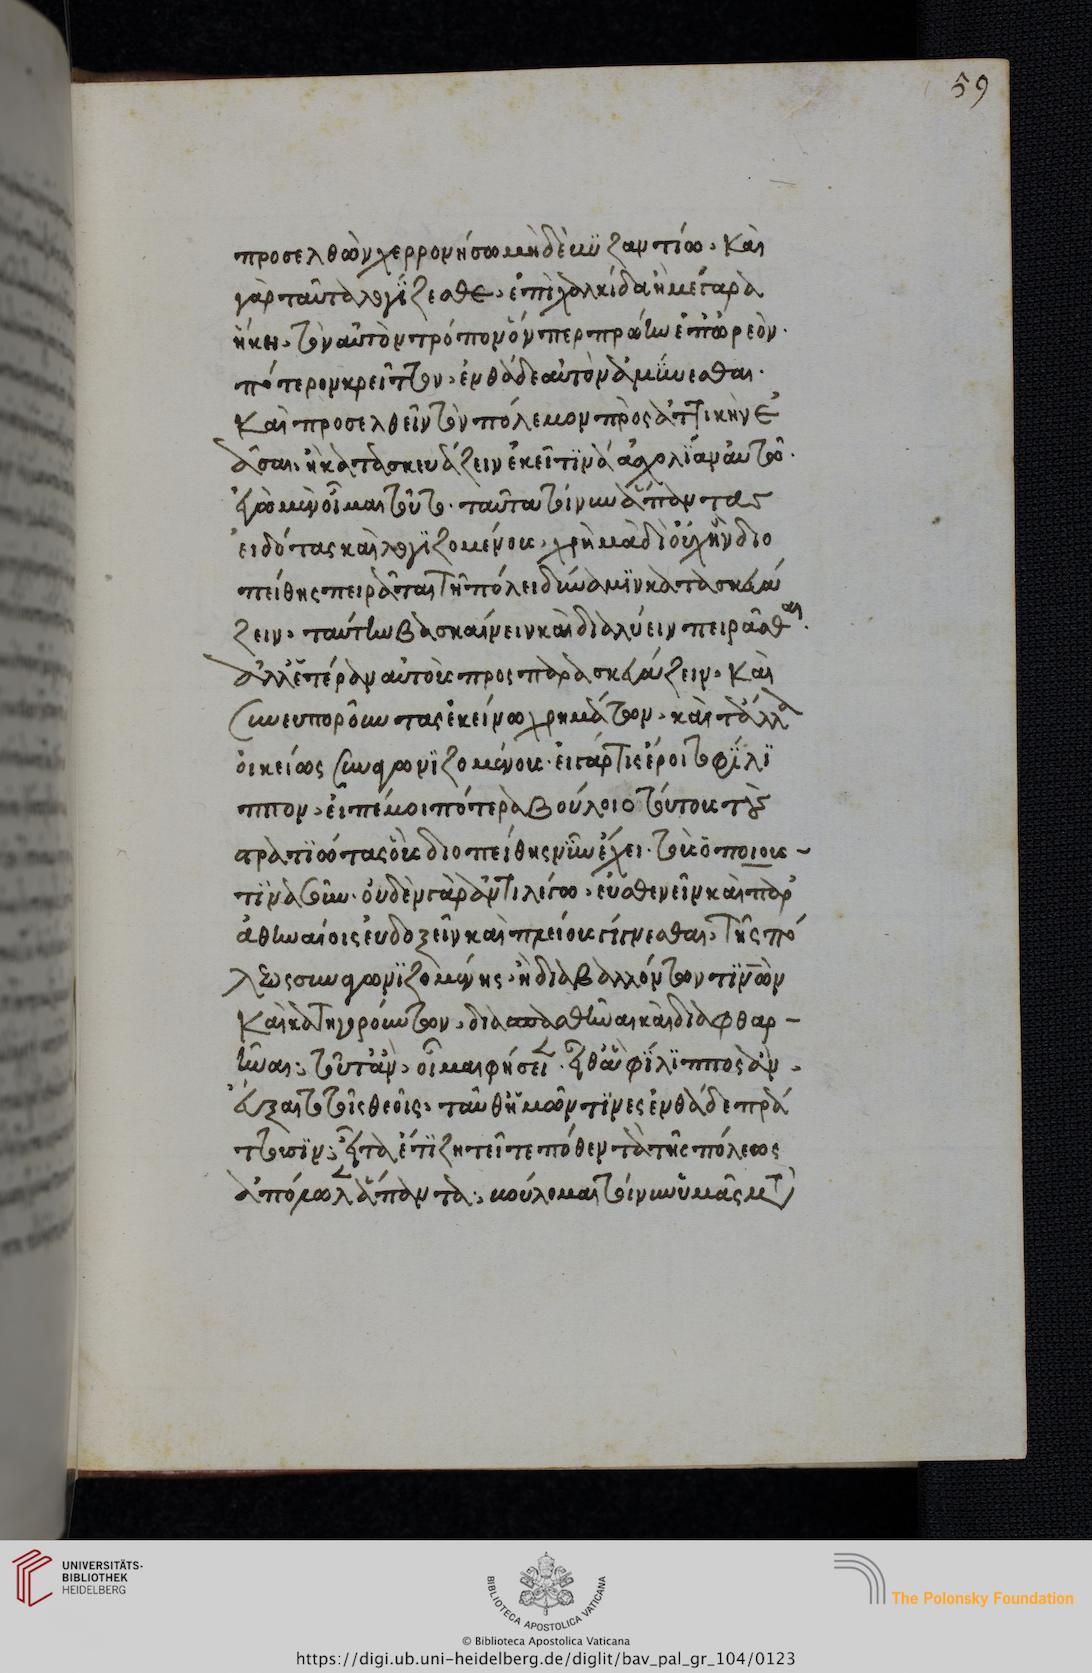 59
προσελθὼν χερρονήσω μὴδὲ βυζαντίω, καὶ
γὰρ ταῦτα λογίζεσθε, ἐπὶ χαλκίδα ἢ μέγαρα
ἥκει, τὸν αὐτὸν τρόπον ὅνπερ πρώην ἐπ' ὠρεὸν.
πότερον κρεῖττον, ἐνθάδε αὐτὸν ἀμύνεσθαι.
καὶ προσελθεῖν τὸν πόλεμον πρὸς ἀττικὴν ἐ
ᾶσαι. ἢ κατασκευάζειν ἐκεῖ τινὰ ἀσχολίαν αὐτῶ.
ἐγὼ μὲν οἶμαι τοῦτο. ταῦτα τοίνυν ἅπαντας
εἰδότας καὶ λογιζομένους, χρὴ μὰ δί' οὐχ ἣν διο
πείθης πειρᾶται τῆ πόλει δύναμιν κατασκευά
ζειν, ταύτην βασκαίνειν καὶ διαλύειν πειρᾶσθαι.
ἀλλ' ἑτέραν αὐτοὺς προσπαρασκευάζειν, καὶ
συνευποροῦντας ἐκείνω χρημάτων, καὶ τἄλλα
οἰκείως συναγωνιζομένους. εἰ γάρ τις ἔροιτο φίλι
ππον, εἰπέ μοι πότερα βούλοιο τούτους τοὺς
στρατιώτας οὓς διοπείθης νῦν ἔχει. τοὺς ὁποιους-
τινὰς οὖν. οὐδὲν γὰρ ἀντιλέγω, εὐσθενεῖν καὶ παρ'
ἀθηναίοις εὐδοξεῖν καὶ πλείους γίγνεσθαι, τῆς πό
λεως συναγωνιζομένης, ἢ διαβαλλόντων τινῶν
καὶ κατηγορούντων, διασπασθῆναι καὶ διαφθαρ-
ῆναι, ταῦτ' ἂν, οἶμαι φήσειε. εἶθ' ἃ φίλιππος ἂν,
εὔξαιτο τοῖς θεοῖς, ταῦθ' ἡμῶν τινες ἐνθάδε πρά
ττουσιν, εἶτα ἔτι ζητεῖτε πόθεν τὰ τῆς πόλεως
ἀπόλωλεν ἅπαντα, βούλομαι τοίνυν ὑμᾶς μετὰ
UNIVERSITÄTS-
BIBLIOTHEK
HEIDELBERG
BIBLIOTECA APOSTOLICA VATICANA
The Polonsky Foundation
© Biblioteca Apostolica Vaticana
https://digi.ub.uni-heidelberg.de/diglit/bav_pal_gr_104/0123